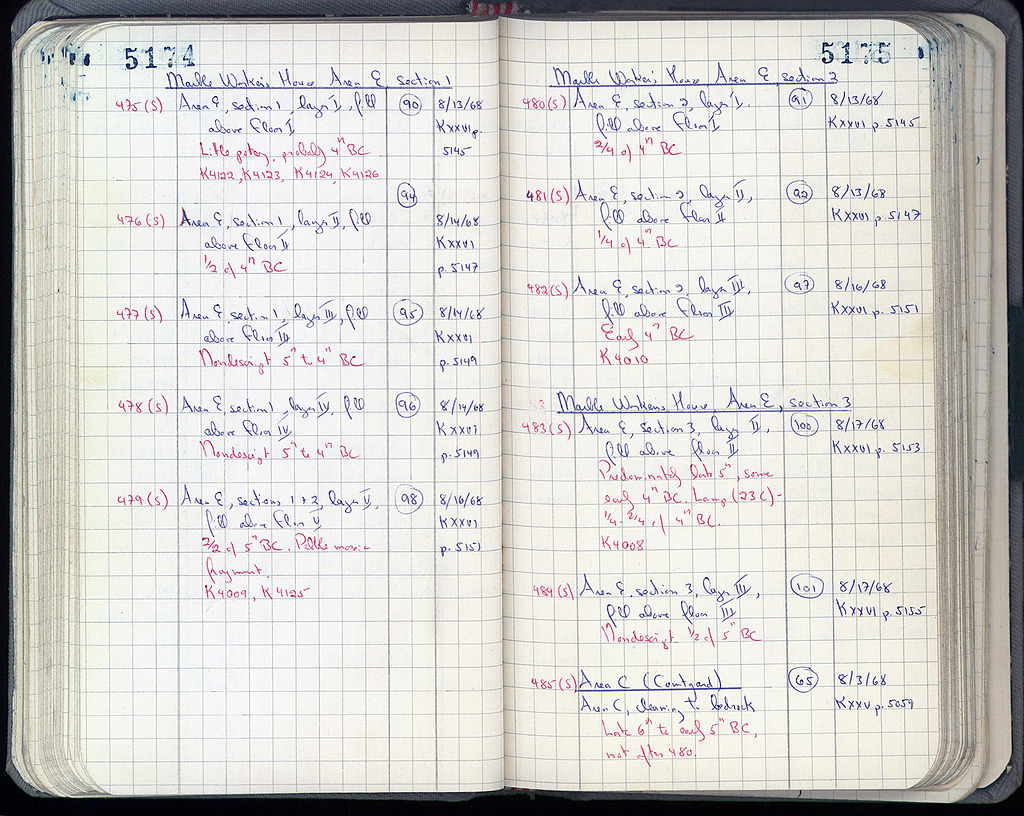 5174
Marble Workers House Area E section 1
475(S) Area E, section 1, layer I, fill 90 8/13/68
above Floor I KXXVI p.
Little pottery, probably 4th BC 5145
K4122, K4123, K4124, K4126
94
476(S) Area E, section 1, layer II, fill 8/14/68
above Floor II KXXVI
1/2 of 4th BC p. 5147
477(S) Area E, section 1, layer III, fill 95 8/14/68
above Floor III KXXVI
Nondescript 5th to 4th BC p. 5149
478(S) Area E, section 1, layer IV, fill 96 8/14/68
above Floor IV KXXVI
Nondescript 5th to 4th BC p. 5149
479(S) Area E, sections 1+2, layer V, 98 8/16/68
fill above Floor V KXXVI
2/2 of 5th BC. Pebble mosaic p. 5151
fragment.
K4009, K4125
5175
Marble Workers House Area E, section 2
480(S) Area E, section 2, layer I. 91 8/13/68
fill above Floor I KXXVI p. 5145
2/4 of 4th BC
481(S) Area E, section 2, layer II, 92 8/13/68
fill above Floor II KXXVI p. 5147
1/4 of 4th BC
482(S) Area E, section 2, layer III, 97 8/16/68
fill above Floor III KXXVI p. 5151
Early 4th BC
K4010
Marble Workers House, Area E, section 3
483(S) Area E, section 3, layer II, 100 8/17/68
fill above floor II KXXVI p. 5153
Predominately late 5th, some
early 4th BC. Lamp (23C) -
1/4-2/4 of 4th BC.
K4008
484(S) Area E, section 3, layer III, 101 8/17/68
fill above floor III KXXVI p. 5155
Nondescript 1/2 of 5th BC
485(S) Area C (Courtyard) 65 8/3/68
Area C, cleaning to bedrock KXXV p. 5059
Late 6th to early 5th BC,
not after 480.